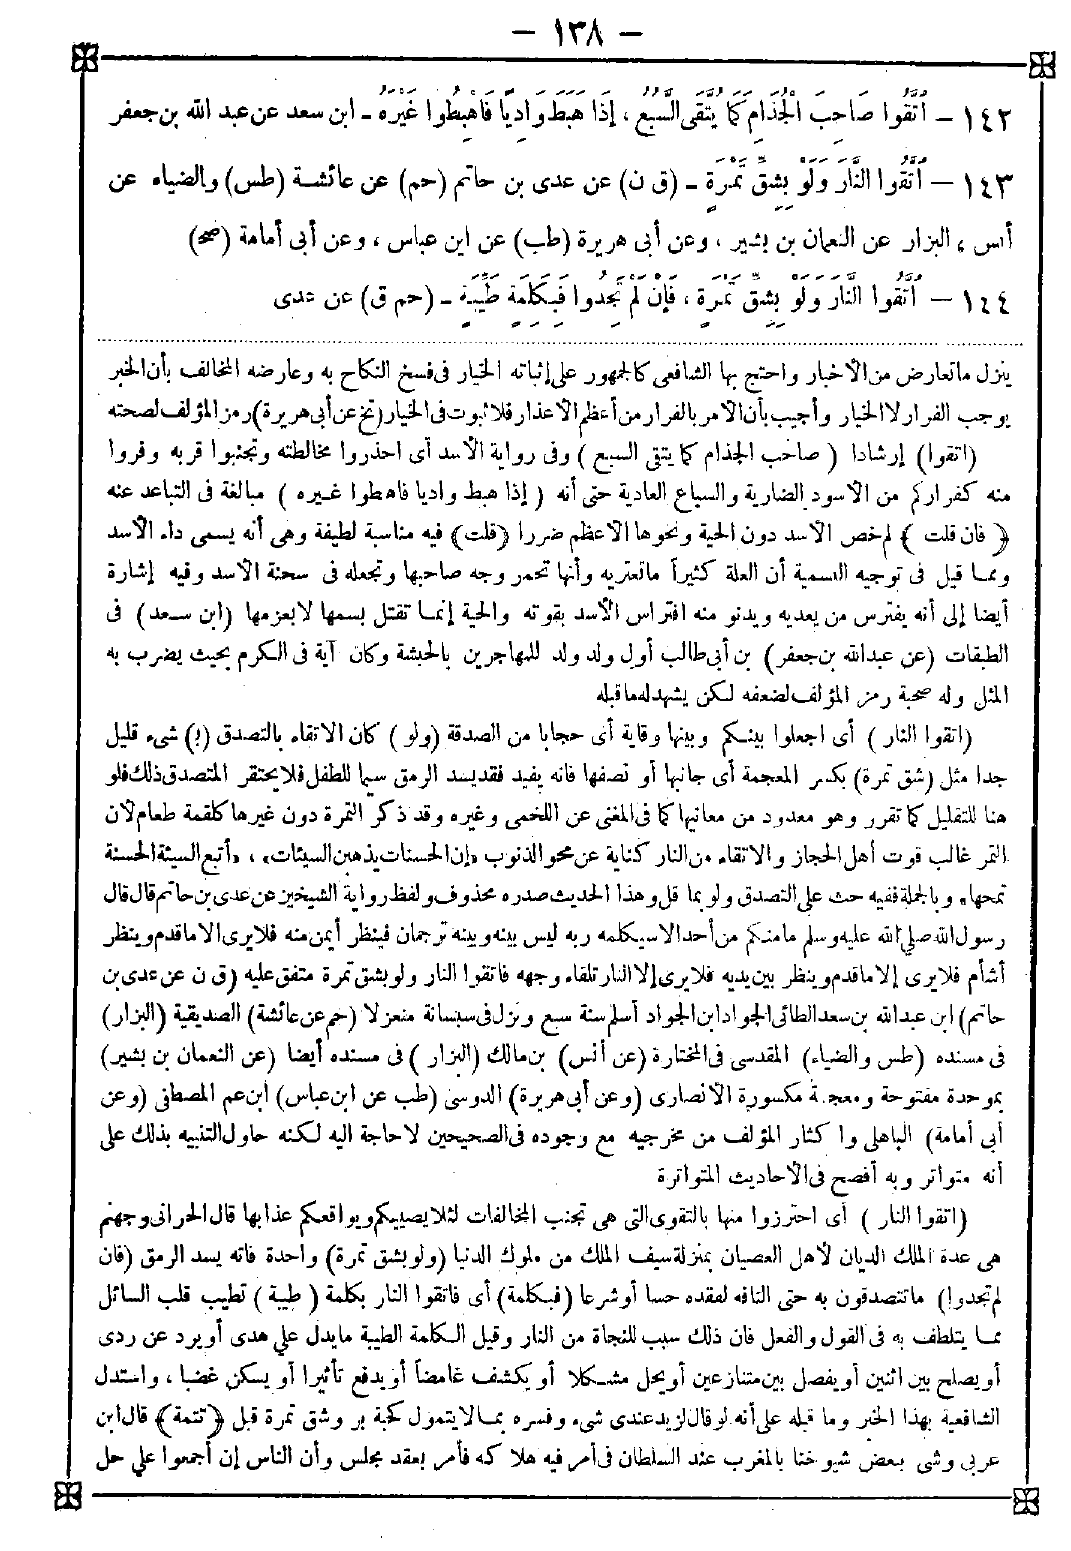 — ١٣٨ —
١٤٢ – اتَّقُوا صَاحِبَ الْجُذَامِ كَمَا يُتَّقَى السَّبُعُ ، إِذَا هَبَطَ وَادِيًا فَاهْبِطُوا غَيْرَهُ – ابن سعد عن عبد الله بن جعفر
١٤٣ – اتَّقُوا النَّارَ وَلَوْ بِشِقِّ تَمْرَةٍ – (ق ن) عن عدى بن حاتم (حم) عن عائشة (طس) والضياء عن
أنس ، البزار عن النعمان بن بشير ، وعن أبى هريرة (طب) عن ابن عباس ، وعن أبى أمامة (صح)
١٤٤ – اتَّقُوا النَّارَ وَلَوْ بِشِقِّ تَمْرَةٍ ، فَإِنْ لَمْ تَجِدُوا فَبِكَلِمَةٍ طَيِّبَةٍ – (حم ق) عن عدى
ينزل ماتعارض من الأخبار واحتج بها الشافعى كالجمهور على إثباته الخيار فى فسخ النكاح به وعارضه المخالف بأن الخبر
يوجب الفرار لا الخيار وأجيب بأن الأمر بالفرار من أعظم الأعذار فلا ثبوت فى الخيار (تخ عن أبى هريرة) رمز المؤلف لصحته
(اتقوا) إرشادا (صاحب الجذام كما يتقى السبع) وفى رواية الأسد أى احذروا مخالطته وتجنبوا قربه وفروا
منه كفراركم من الأسود الضارية والسباع العادية حتى أنه (إذا هبط واديا فاهبطوا غيره) مبالغة فى التباعد عنه
(فان قلت) لم خص الأسد دون الحية ونحوها الأعظم ضررا (قلت) فيه مناسبة لطيفة وهى أنه يسمى داء الأسد
ومما قيل فى توجيه التسمية أن العلة كثيراً ماتعتريه وأنها تحمر وجه صاحبها وتجعله فى سحنة الأسد وفيه إشارة
أيضا إلى أنه يفترس من يعديه ويدنو منه افتراس الأسد بقوته والحية إنما تقتل بسمها لابعزمها (ابن سعد) فى
الطبقات (عن عبدالله بن جعفر) بن أبى طالب أول ولد ولد للمهاجرين بالحبشة وكان آية فى الكرم بحيث يضرب به
المثل وله صحبة رمز المؤلف لضعفه لكن يشهد له ماقبله
(اتقوا النار) أى اجعلوا بينكم وبينها وقاية أى حجابا من الصدقة (ولو) كان الاتقاء بالتصدق (ب) شىء قليل
جدا مثل (شق تمرة) بكسر المعجمة أى جانبها أو نصفها فانه يفيد فقد يسد الرمق سيما للطفل فلا يحتقر المتصدق ذلك فلو
هنا للتقليل كما تقرر وهو معدود من معانيها كما فى المغنى عن اللخمى وغيره وقد ذكر التمرة دون غيرها كلقمة طعام لأن
التمر غالب قوت أهل الحجاز والاتقاء من النار كناية عن محو الذنوب «إن الحسنات يذهبن السيئات» ، «أتبع السيئة الحسنة
تمحها» وبالجملة ففيه حث على التصدق ولو بما قل وهذا الحديث صدره محذوف ولفظ رواية الشيخين عن عدى بن حاتم قال قال
رسول الله صلى الله عليه وسلم مامنكم من أحد الا سيكلمه ربه ليس بينه وبينه ترجمان فينظر أيمن منه فلايرى الا ماقدم وينظر
أشأم فلايرى إلا ماقدم وينظر بين يديه فلايرى إلا النار تلقاء وجهه فاتقوا النار ولو بشق تمرة متفق عليه (ق ن عن عدى بن
حاتم) ابن عبدالله بن سعد الطائى الجواد ابن الجواد أسلم سنة سبع ونزل منعزلا (حم عن عائشة) الصديقية (البزار)
فى مسنده (طس والضياء) المقدسى فى المختارة (عن أنس) بن مالك (البزار) فى مسنده أيضا (عن النعمان بن بشير)
بموحدة مفتوحة ومعجمة مكسورة الأنصارى (وعن أبى هريرة) الدوسى (طب عن ابن عباس) ابن عم المصطفى (وعن
أبى أمامة) الباهلى واكثار المؤلف من مخرجيه مع وجوده فى الصحيحين لاحاجة اليه لكنه حاول التنبيه بذلك على
أنه متواتر وبه أفصح فى الأحاديث المتواترة
(اتقوا النار) أى احترزوا منها بالتقوى التى هى تجنب المخالفات لئلا يصيبكم ويواقعكم عذابها قال الحرانى وجهنم
هى عدة الملك الديان لأهل العصيان بمنزلة سيف الملك من ملوك الدنيا (ولو بشق تمرة) واحدة فانه يسد الرمق (فان
لم تجدوا) ماتتصدقون به حتى التافه لفقده حسا أو شرعا (فبكلمة) أى فاتقوا النار بكلمة (طيبة) تطيب قلب السائل
مما يتلطف به فى القول والفعل فان ذلك سبب للنجاة من النار وقيل الكلمة الطيبة مايدل على هدى أو يرد عن ردى
أو يصلح بين اثنين أو يفصل بين متنازعين أو يحل مشكلا أو يكشف غامضاً أو يدفع تأثيرا أو يسكن غضبا ، واستدل
الشافعية بهذا الخبر وما قبله على أنه لو قال لزيد عندى شىء وفسره بما لايتمول كحبة بر وشق تمرة قبل (تتمة) قال ابن
عربى وشى بعض شيوخنا بالمغرب عند السلطان فى أمر فيه هلاكه فأمر بعقد مجلس وأن الناس إن أجمعوا على حل